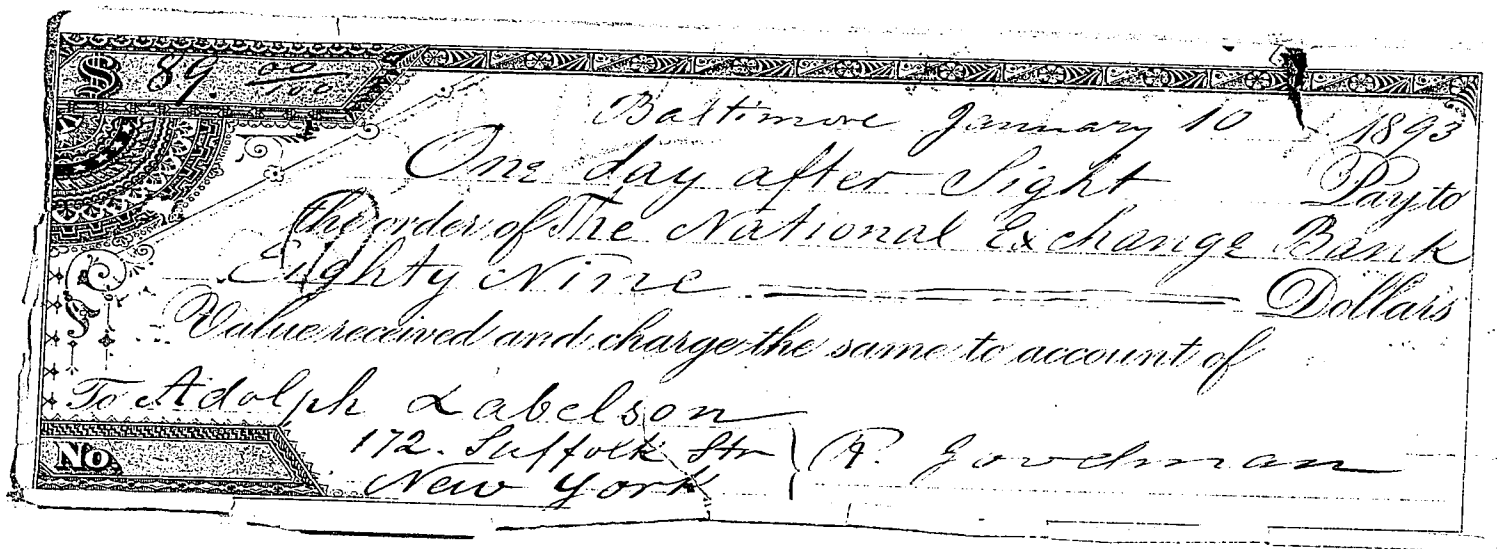 $ 89. 00/100
Baltimore January 10 1893
One day after Sight Pay to
the order of The National Exchange Bank
Eighty Nine Dollars
Value received and charge the same to account of
To Adolph Labelson
172. Suffolk Str
New York
No. R. Goodman